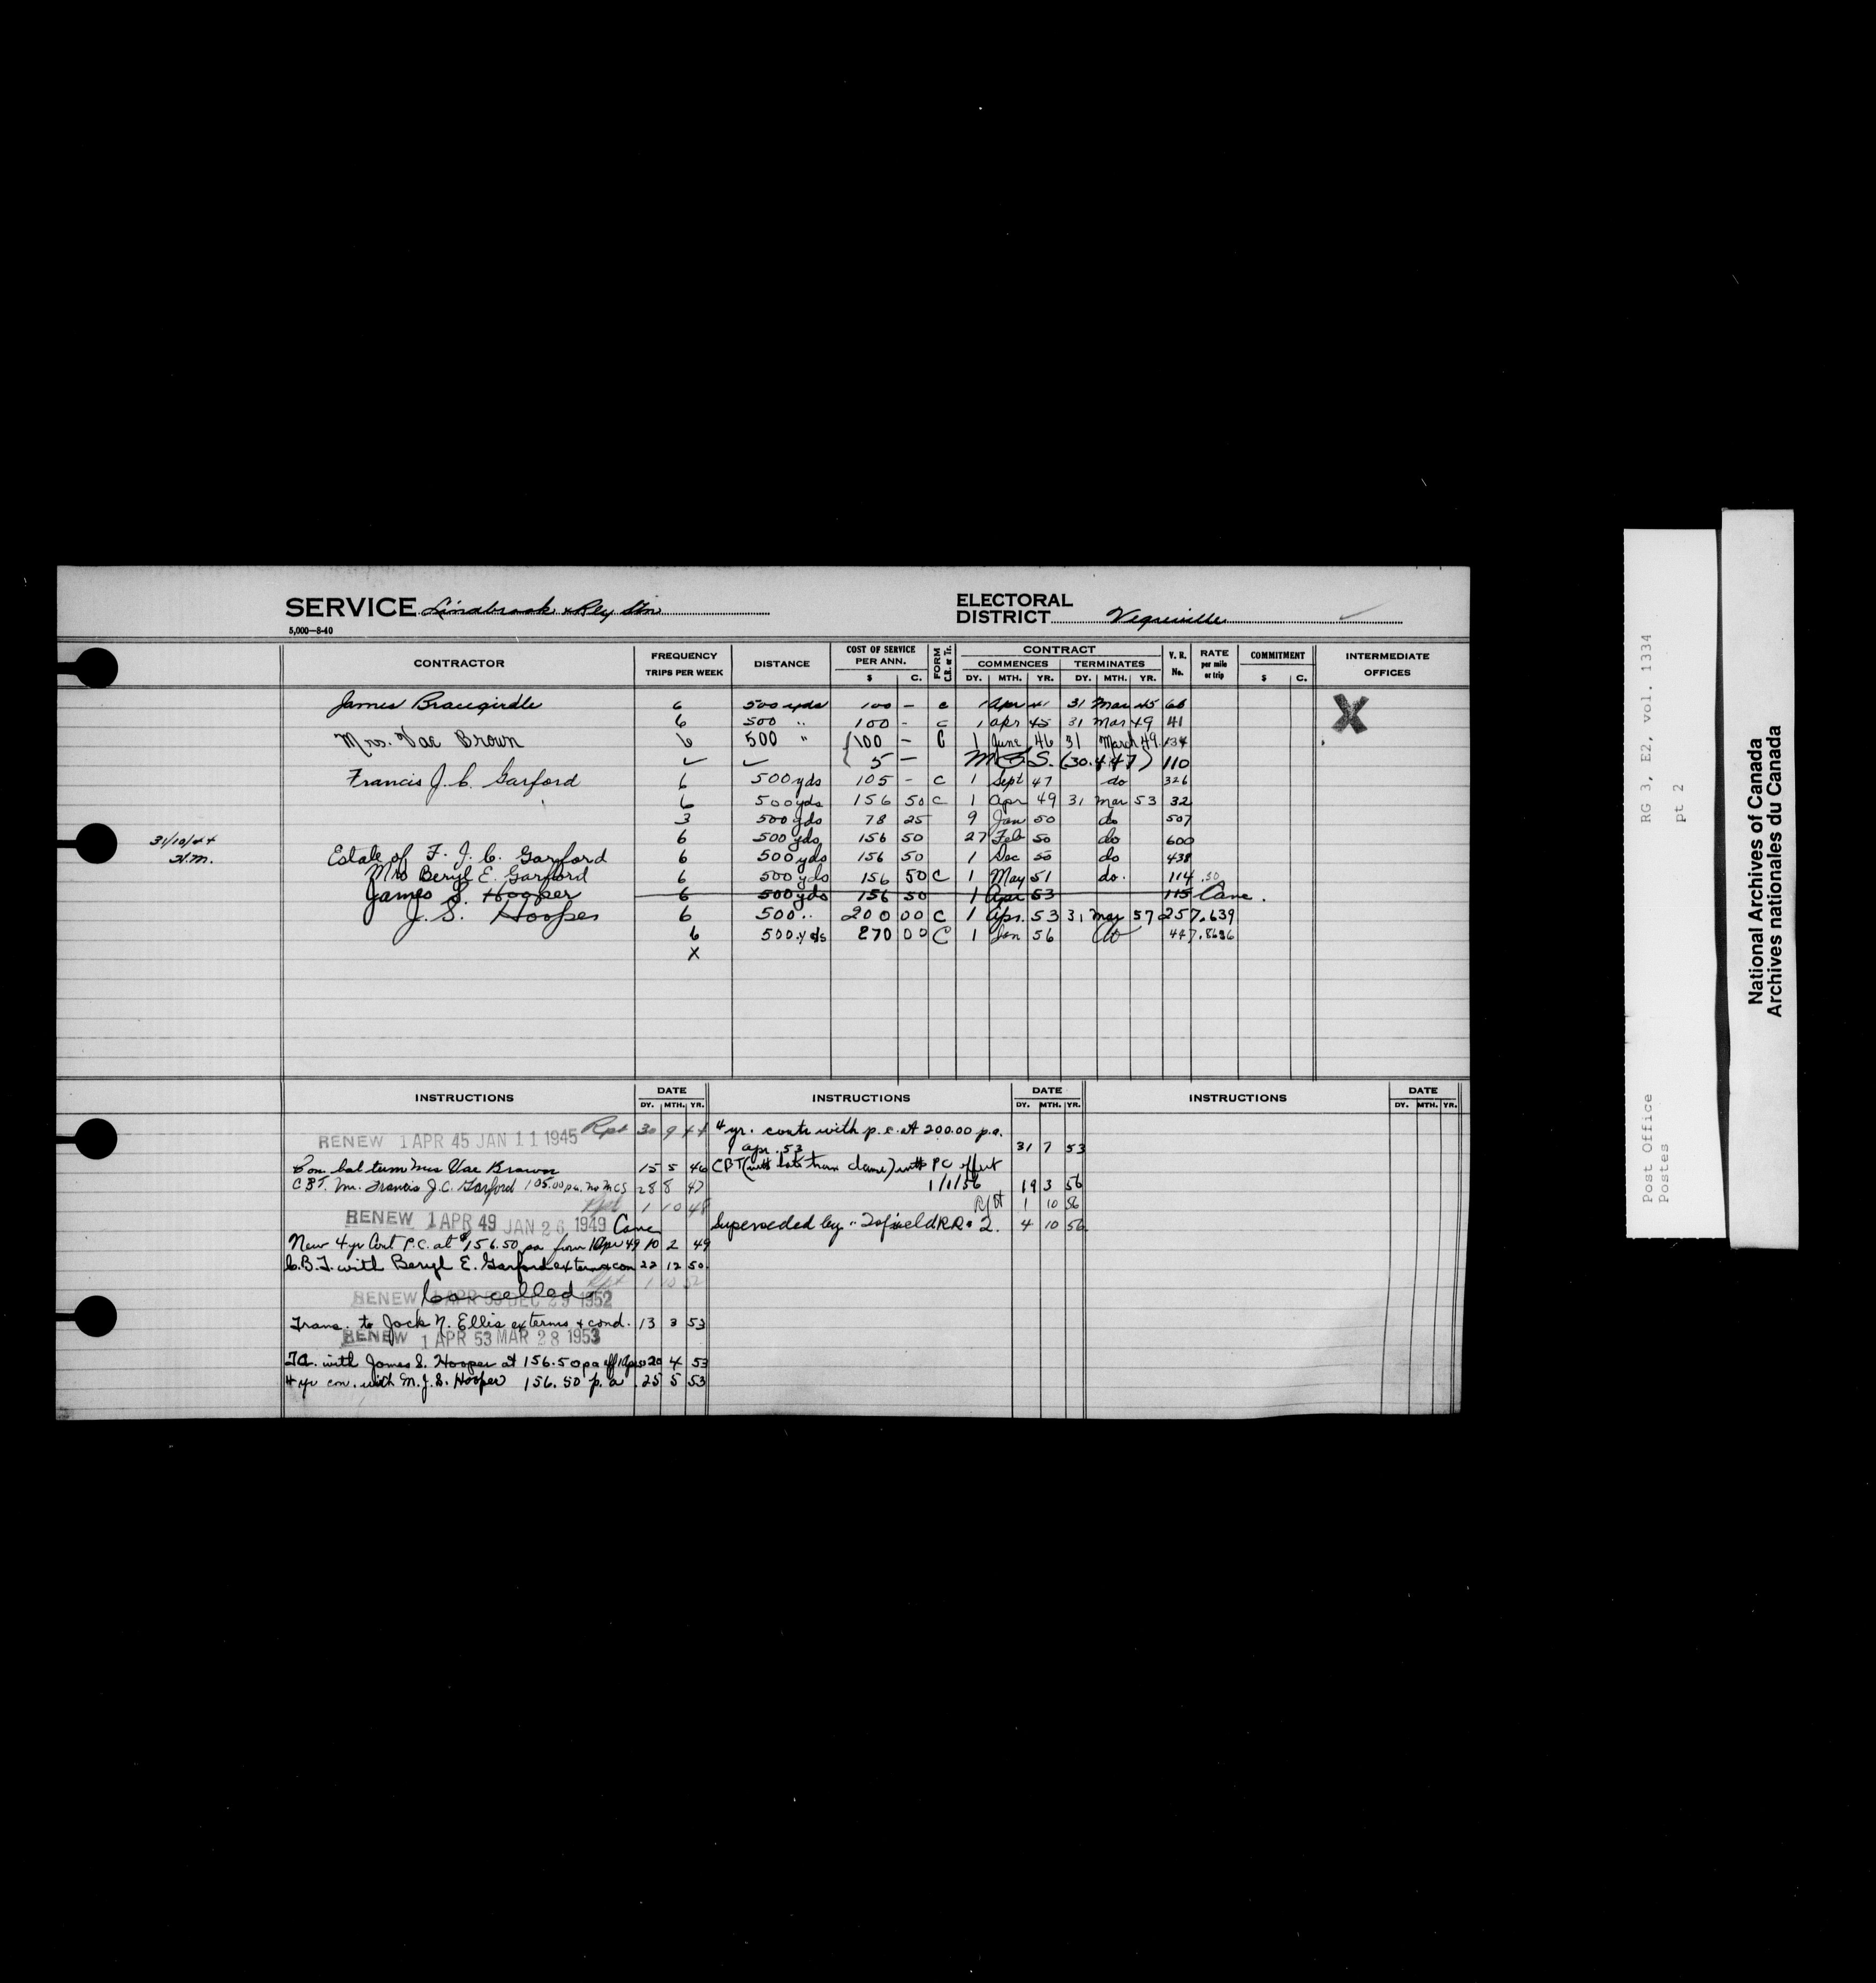 SERVICE Lindbrook & Rly Stn
5,000—8-40
ELECTORAL
DISTRICT Vegreville
CONTRACTOR FREQUENCY TRIPS PER WEEK DISTANCE COST OF SERVICE PER ANN. $ C. FORM C.R. or Tr. CONTRACT COMMENCES DY. MTH. YR. TERMINATES DY. MTH. YR. V. R. No. RATE per mile or trip COMMITMENT $ C. INTERMEDIATE OFFICES
James Bracegirdle 6 500 yds 100 — c 1 Apr 41 31 Mar 45 66 X
6 500 " 100 - c 1 apr 45 31 Mar 49 41
Mrs. Vae Brown 6 500 " 100 — C 1 June 46 31 March 49 134
✓ ✓ 5 — M C S. (30.4.47) 110
Francis J. C. Garford 6 500 yds 105 - c 1 Sept 47 do 326
6 500 yds 156 50 c 1 Apr 49 31 Mar 53 32
3 500 yds 78 25 9 Jan 50 do 507
6 500 yds 156 50 27 Feb 50 do 600
31/10/44
Estate of F. J. C. Garford 6 500 yds 156 50 1 Dec 50 do 438
Mrs Beryl E. Garford 6 500 yds 156 50 C 1 May 51 do. 114 .50
James S. Hooper 6 500 yds 156 50 1 Apr 53 115 Canc.
J. S. Hooper 6 500 .. 200 00 C 1 Apr. 53 31 Mar 57 257 .639
6 500 yds 270 00 C 1 Jan 56 do 447 .8626
X
INSTRUCTIONS DATE DY. MTH. YR. INSTRUCTIONS DATE DY. MTH. YR. INSTRUCTIONS DATE DY. MTH. YR.
Rpt 30 9 44
RENEW 1 APR 45 JAN 11 1945
Con bal term Mrs Vae Brown 15 5 46
C.B.T. Mr. Francis J.C. Garford 105.00 pa. no MCS 28 8 47
Rpt 1 10 48
RENEW 1 APR 49 JAN 26 1949 Canc
New 4 yr Cont P.C. at $156.50 pa from 1 Apr 49 10 2 49
C.B.T. with Beryl E. Garford ex terms & con 22 12 50
Rpt 1 10 52
RENEW 1 APR 53 DEC 29 1952 Cancelled
Trans. to Jack N. Ellis ex terms & cond. 13 3 53
RENEW 1 APR 53 MAR 28 1953
T.A. with James S. Hooper at 156.50 pa eff 1 Apr 53 20 4 53
4 yr con. with M. J. S. Hooper 156.50 p. a. 25 5 53
4 yr. contr with p.c. at 200.00 p.a.
apr. 53 31 7 53
CBT (with late trans clause) with PC effect
1/1/56 19 3 56
Rpt 1 10 56
Superseded by Tofield RR 2. 4 10 56
Post Office RG 3, E2, vol. 1334
Postes pt 2
National Archives of Canada
Archives nationales du Canada